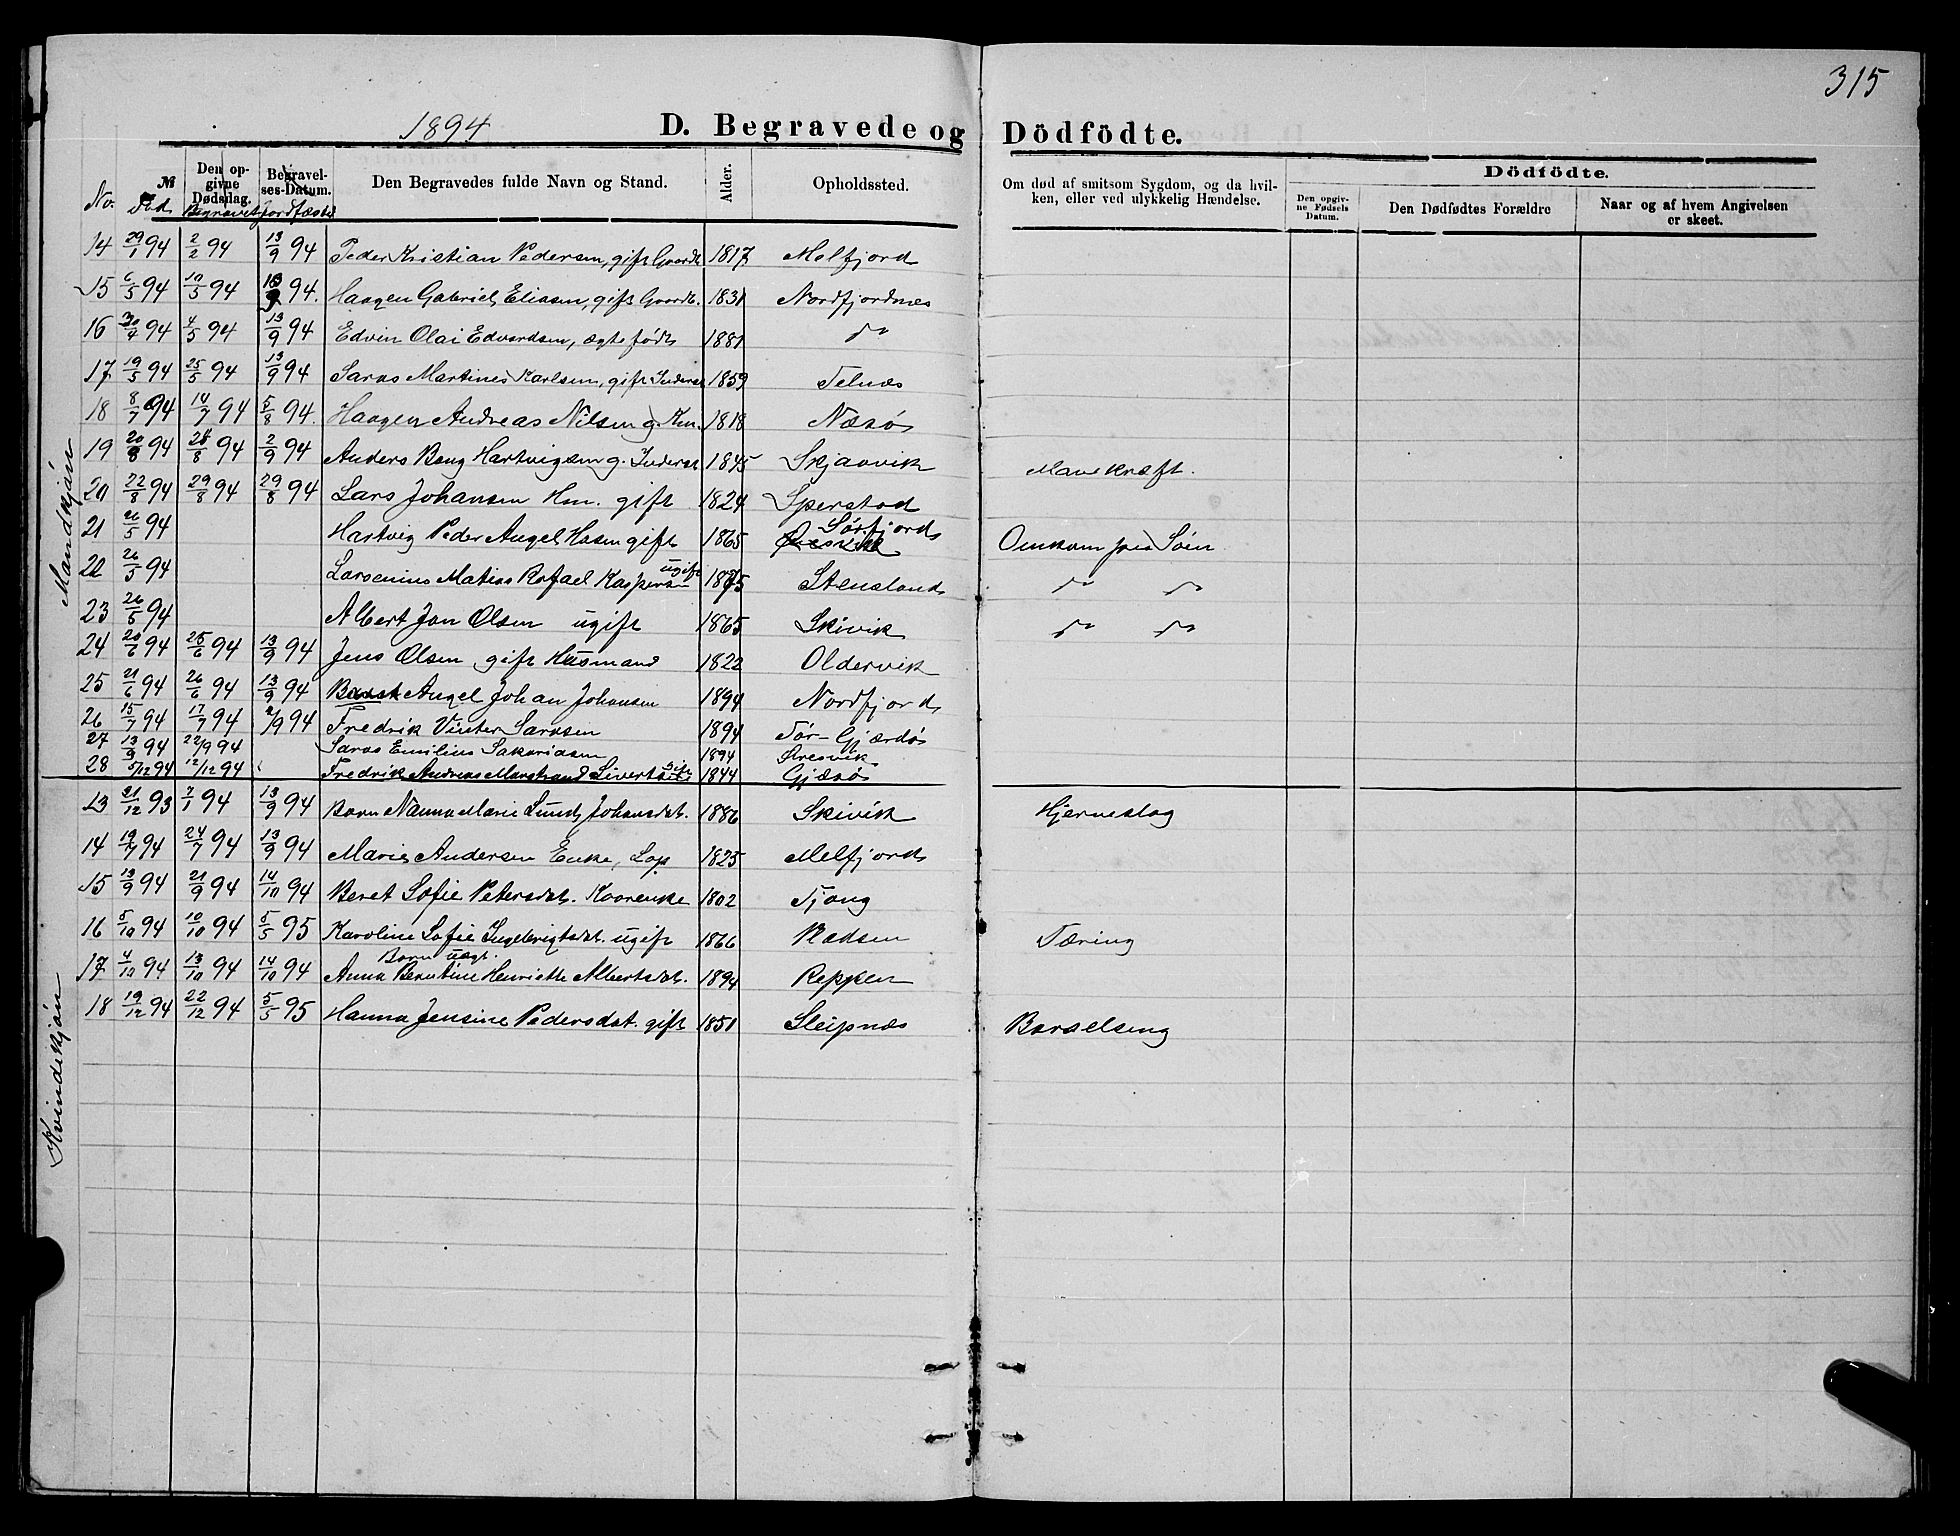 315
1894 D. Begravede og Dödfödte.
No. № Død Den opgivne Dødsdag. Begravet Begravelses-Datum. Jordfæstet Den Begravedes fulde Navn og Stand. Alder. Opholdssted. Om død af smitsom Sygdom, og da hvilken, eller ved ulykkelig Hændelse. Dödfödte. Den opgivne Fødsels Datum. Den Dødfødtes Forældre Naar og af hvem Angivelsen er skeet.
Mandkjön
14 29/1 94 2/2 94 13/9 94 Peder Kristian Pedersen, gift Gaardb. 1817 Melfjord
15 6/5 94 10/5 94 13/9 94. Haagen Gabriel Eliasen, gift Gaardb. 1831 Nordfjordnes
16 30/4 94 4/5 94 13/9 94 Edvin Olai Edvardsen, ægte født 1881 do
17 19/5 94 25/5 94 13/9 94 Saras Martines Karlsen, gift Inderst 1859 Telnæs
18 8/7 94 14/7 94 5/8 94. Haagen Andreas Nilsen g. Km. 1818 Næsö
19 20/8 94 28/8 94 2/9 94 Anders Bang Hartvigsen g. Inderst 1845 Skjaavik Mavekræft.
20 22/8 94 29/8 94 29/8 94 Lars Johansen Hm. gift 1824 Sperstad
21 26/5 94 Hartvig Peder Angel Hosen gift 1865 Øresvik Sörfjord Omkom paa Söen
22 26/5 94 Larsenius Matias Rafael Kaspersen ugift 1875 Stensland do do
23 26/5 94 Albert Jan Olsen ugift 1865 Skivik do do
24 20/6 94 25/6 94 13/9 94 Jens Olsen, gift Husmand 1822 Oldervik
25 21/6 94 26/6 94 13/9 94 Angel Johan Johansen 1894 Nordfjord
26 15/7 94 17/7 94 2/9 94 Fredrik Vinter Sarasen 1894 Tör-Gjærdö
27 13/9 94 22/9 94 Saras Emilius Sakariasen 1894 Øresvik
28 5/12 94 12/12 94 Fredrik Andreas Marstrand Sivertsen gift 1844 Gjæsö
Kvindekjön
13 21/12 93 7/1 94 13/9 94 Barn Nanna Marie Lund Johansdat. 1886 Skivik Hjerneslag
14 19/7 94 24/7 94 13/9 94 Marie Andersen Enke, Lap 1825 Melfjord
15 13/9 94 21/9 94 14/10 94 Beret Sofie Petersdat. Kaarenke 1802 Tjong
16 5/10 94 10/10 94 5/5 95 Karoline Sofie Ingebrigtsdat. ugift 1866 Rødsen Tæring
17 4/10 94 13/10 94 14/10 94 Barn uægt. Anna Berntine Henriette Albertsdat. 1894 Reppen
18 19/12 94 22/12 94 5/5 95 Hanna Jensine Pedersdat. gift 1851 Sleipnæs Barselseng